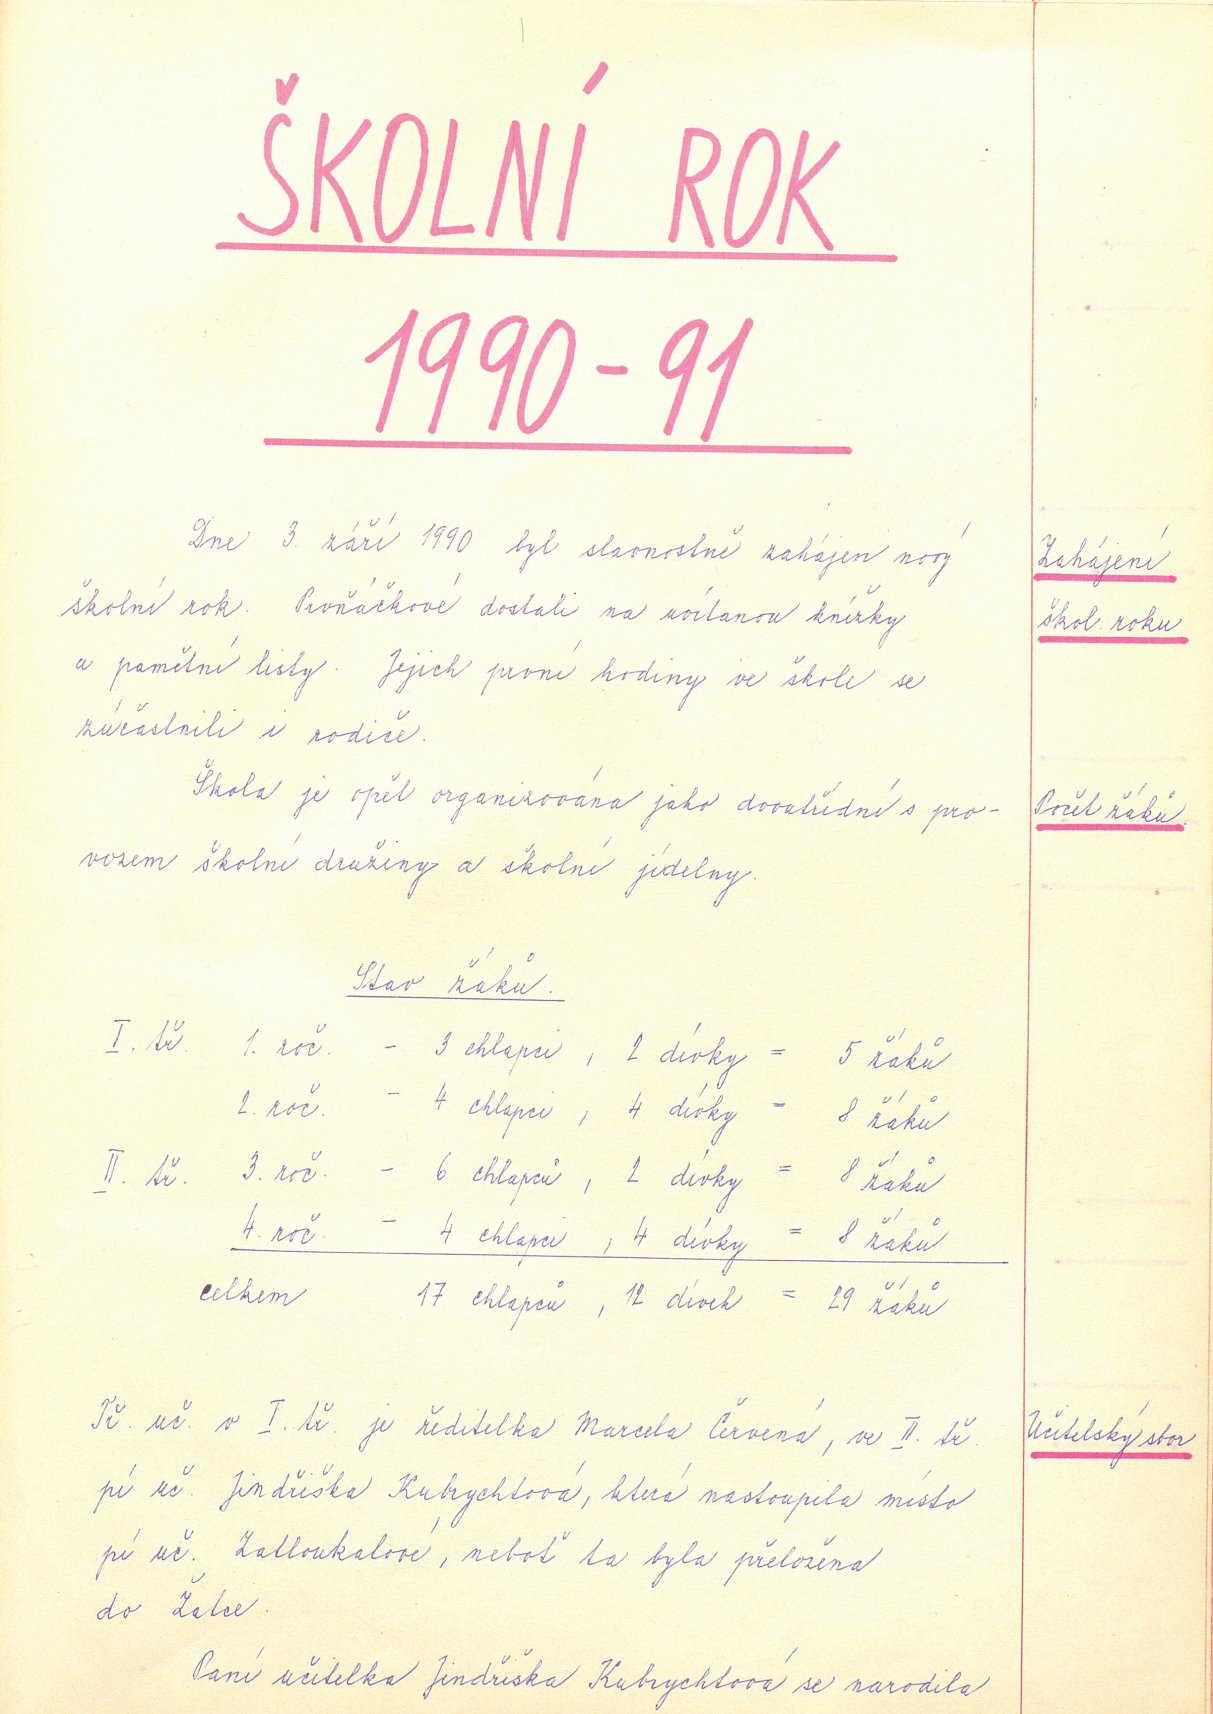 ŠKOLNÍ ROK
1990-91
Dne 3. září 1990 byl slavnostně zahájen nový
školní rok. Prvňáčkové dostali na uvítanou knížky
a pamětní listy. Jejich první hodiny ve škole se
zúčastnili i rodiče.
Škola je opět organizována jako dvoutřídní s pro-
vozem školní družiny a školní jídelny.
Zahájení
škol. roku
Počet žáků.
Stav žáků.
I. tř. 1. roč. - 3 chlapci, 2 dívky = 5 žáků
2. roč. - 4 chlapci, 4 dívky = 8 žáků
II. tř. 3. roč. - 6 chlapců, 2 dívky = 8 žáků
4. roč. - 4 chlapci, 4 dívky = 8 žáků
celkem 17 chlapců, 12 dívek = 29 žáků
Tř. uč. v I. tř. je ředitelka Marcela Červená, ve II. tř.
pí uč. Jindřiška Kubrychtová, která nastoupila místo
pí uč. Zatloukalové, neboť ta byla přeložena
do Žatce.
Paní učitelka Jindřiška Kubrychtová se narodila
Učitelský sbor